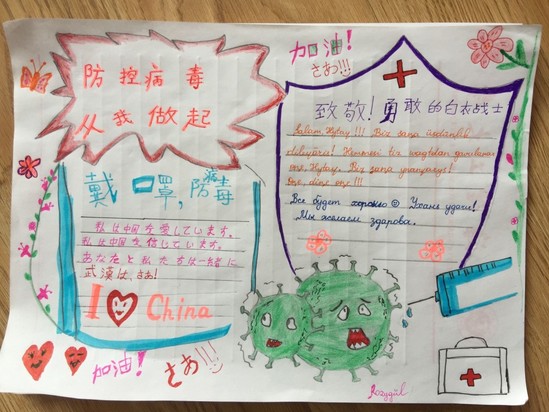 防控病毒
从我做起
加油!
さあ!!!
致敬!勇敢的白衣战士
Salam Hytaý !!! Biz saňa üstünlik
dileýäris! Hemmesi tiz wagtdan gowulanar
Öňe, Hytaý. Biz saňa ynanýarys!
Öňe, diňe öňe !!!
Все будет хорошо ☺ Ухань удачи!
Мы желаем здарова.
戴口罩,防病毒
私は中国を愛しています。
私は中国を信じています。
あなたと私たちは一緒に
武漢は、さあ!
I ♡ China
加油!
さあ!!!
Jozygül